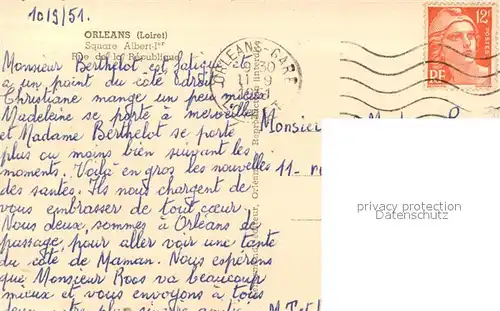 10/9/51.
ORLEANS (Loiret)
Square Albert-Ier
Rue de la République
Monsieur Berthelot est fatigué
a un point du côté
Christiane mange un peu mieux
Madeleine se porte à merveille
et Madame Berthelot se porte
plus ou moins bien suivant les
moments. Voilà en gros les nouvelles
des santés. Ils nous chargent de
vous embrasser de tout cœur
Nous deux, sommes à Orléans de
passage, pour aller voir une tante
du côté de Maman. Nous espérons
que Monsieur Roos va beaucoup
mieux et vous envoyons à tous
deux notre plus sincère amitié
ORLEANS-GARE
12F
POSTES
RF
Monsieur
11-
privacy protection
Datenschutz